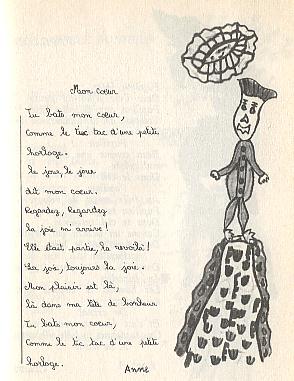 Mon cœur
Tu bats mon cœur,
Comme le tic tac d'une petite
horloge.
Le jour, le jour
dit mon cœur.
Regardez, Regardez
la joie m'arrive!
Elle était partie, la revoilà!
La joie, toujours la joie.
Mon plaisir est là,
là dans ma tête de bonheur
Tu bats mon cœur,
Comme le tic tac d'une petite
horloge.
Anne